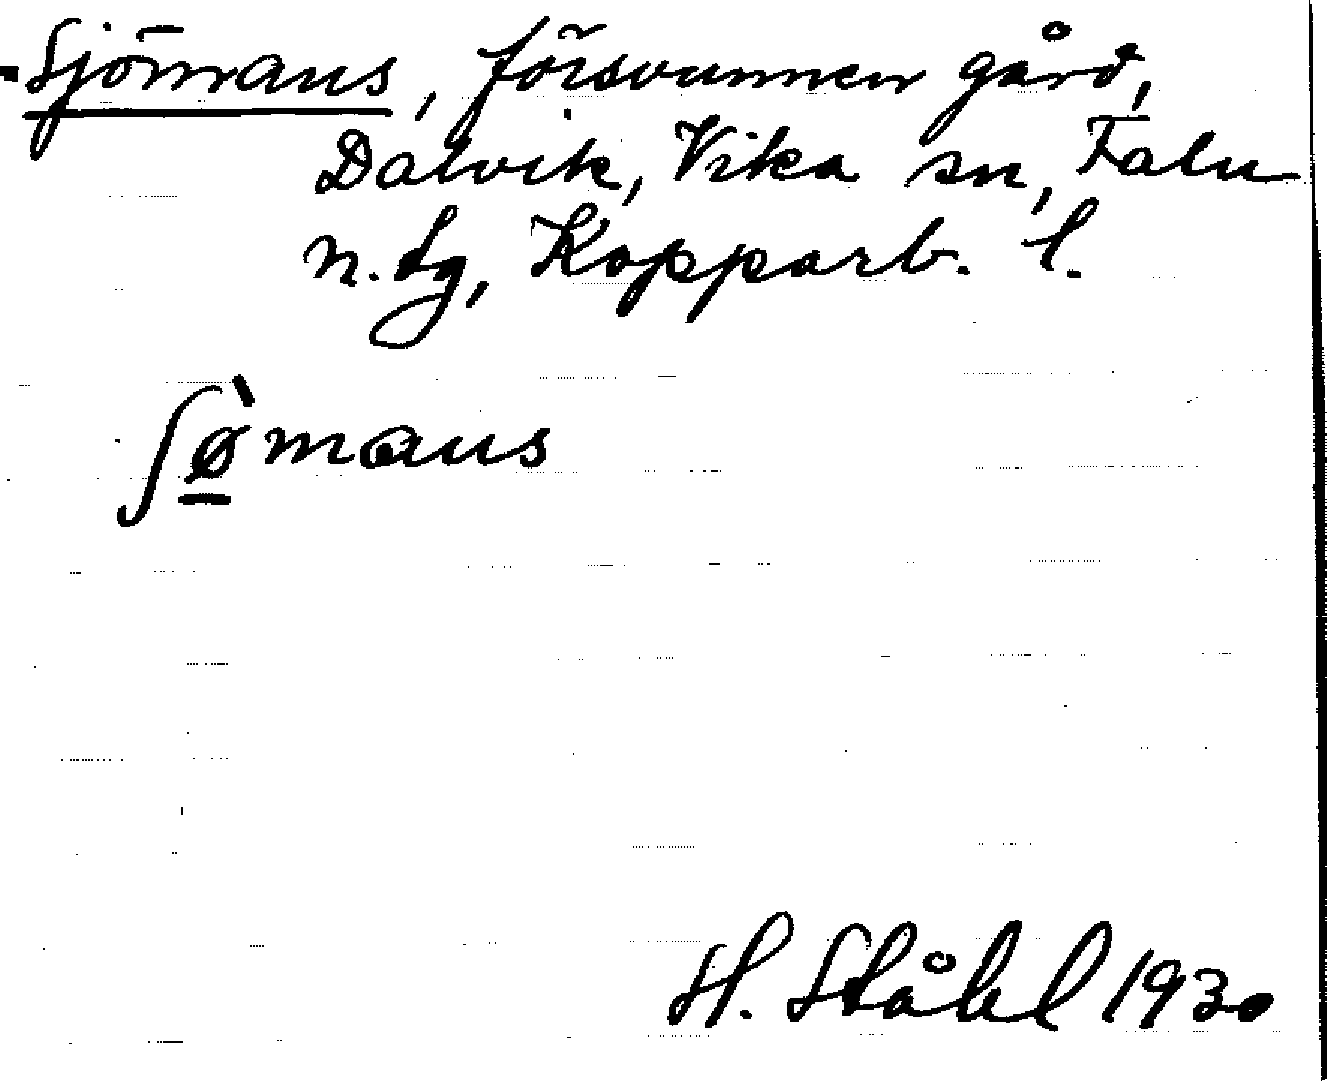 Sjömans, försvunnen gård,
Dalvik, Vika sn, Falu
n. dg, Kopparb. l.
ʃø̀mans
H. Ståhl 1930